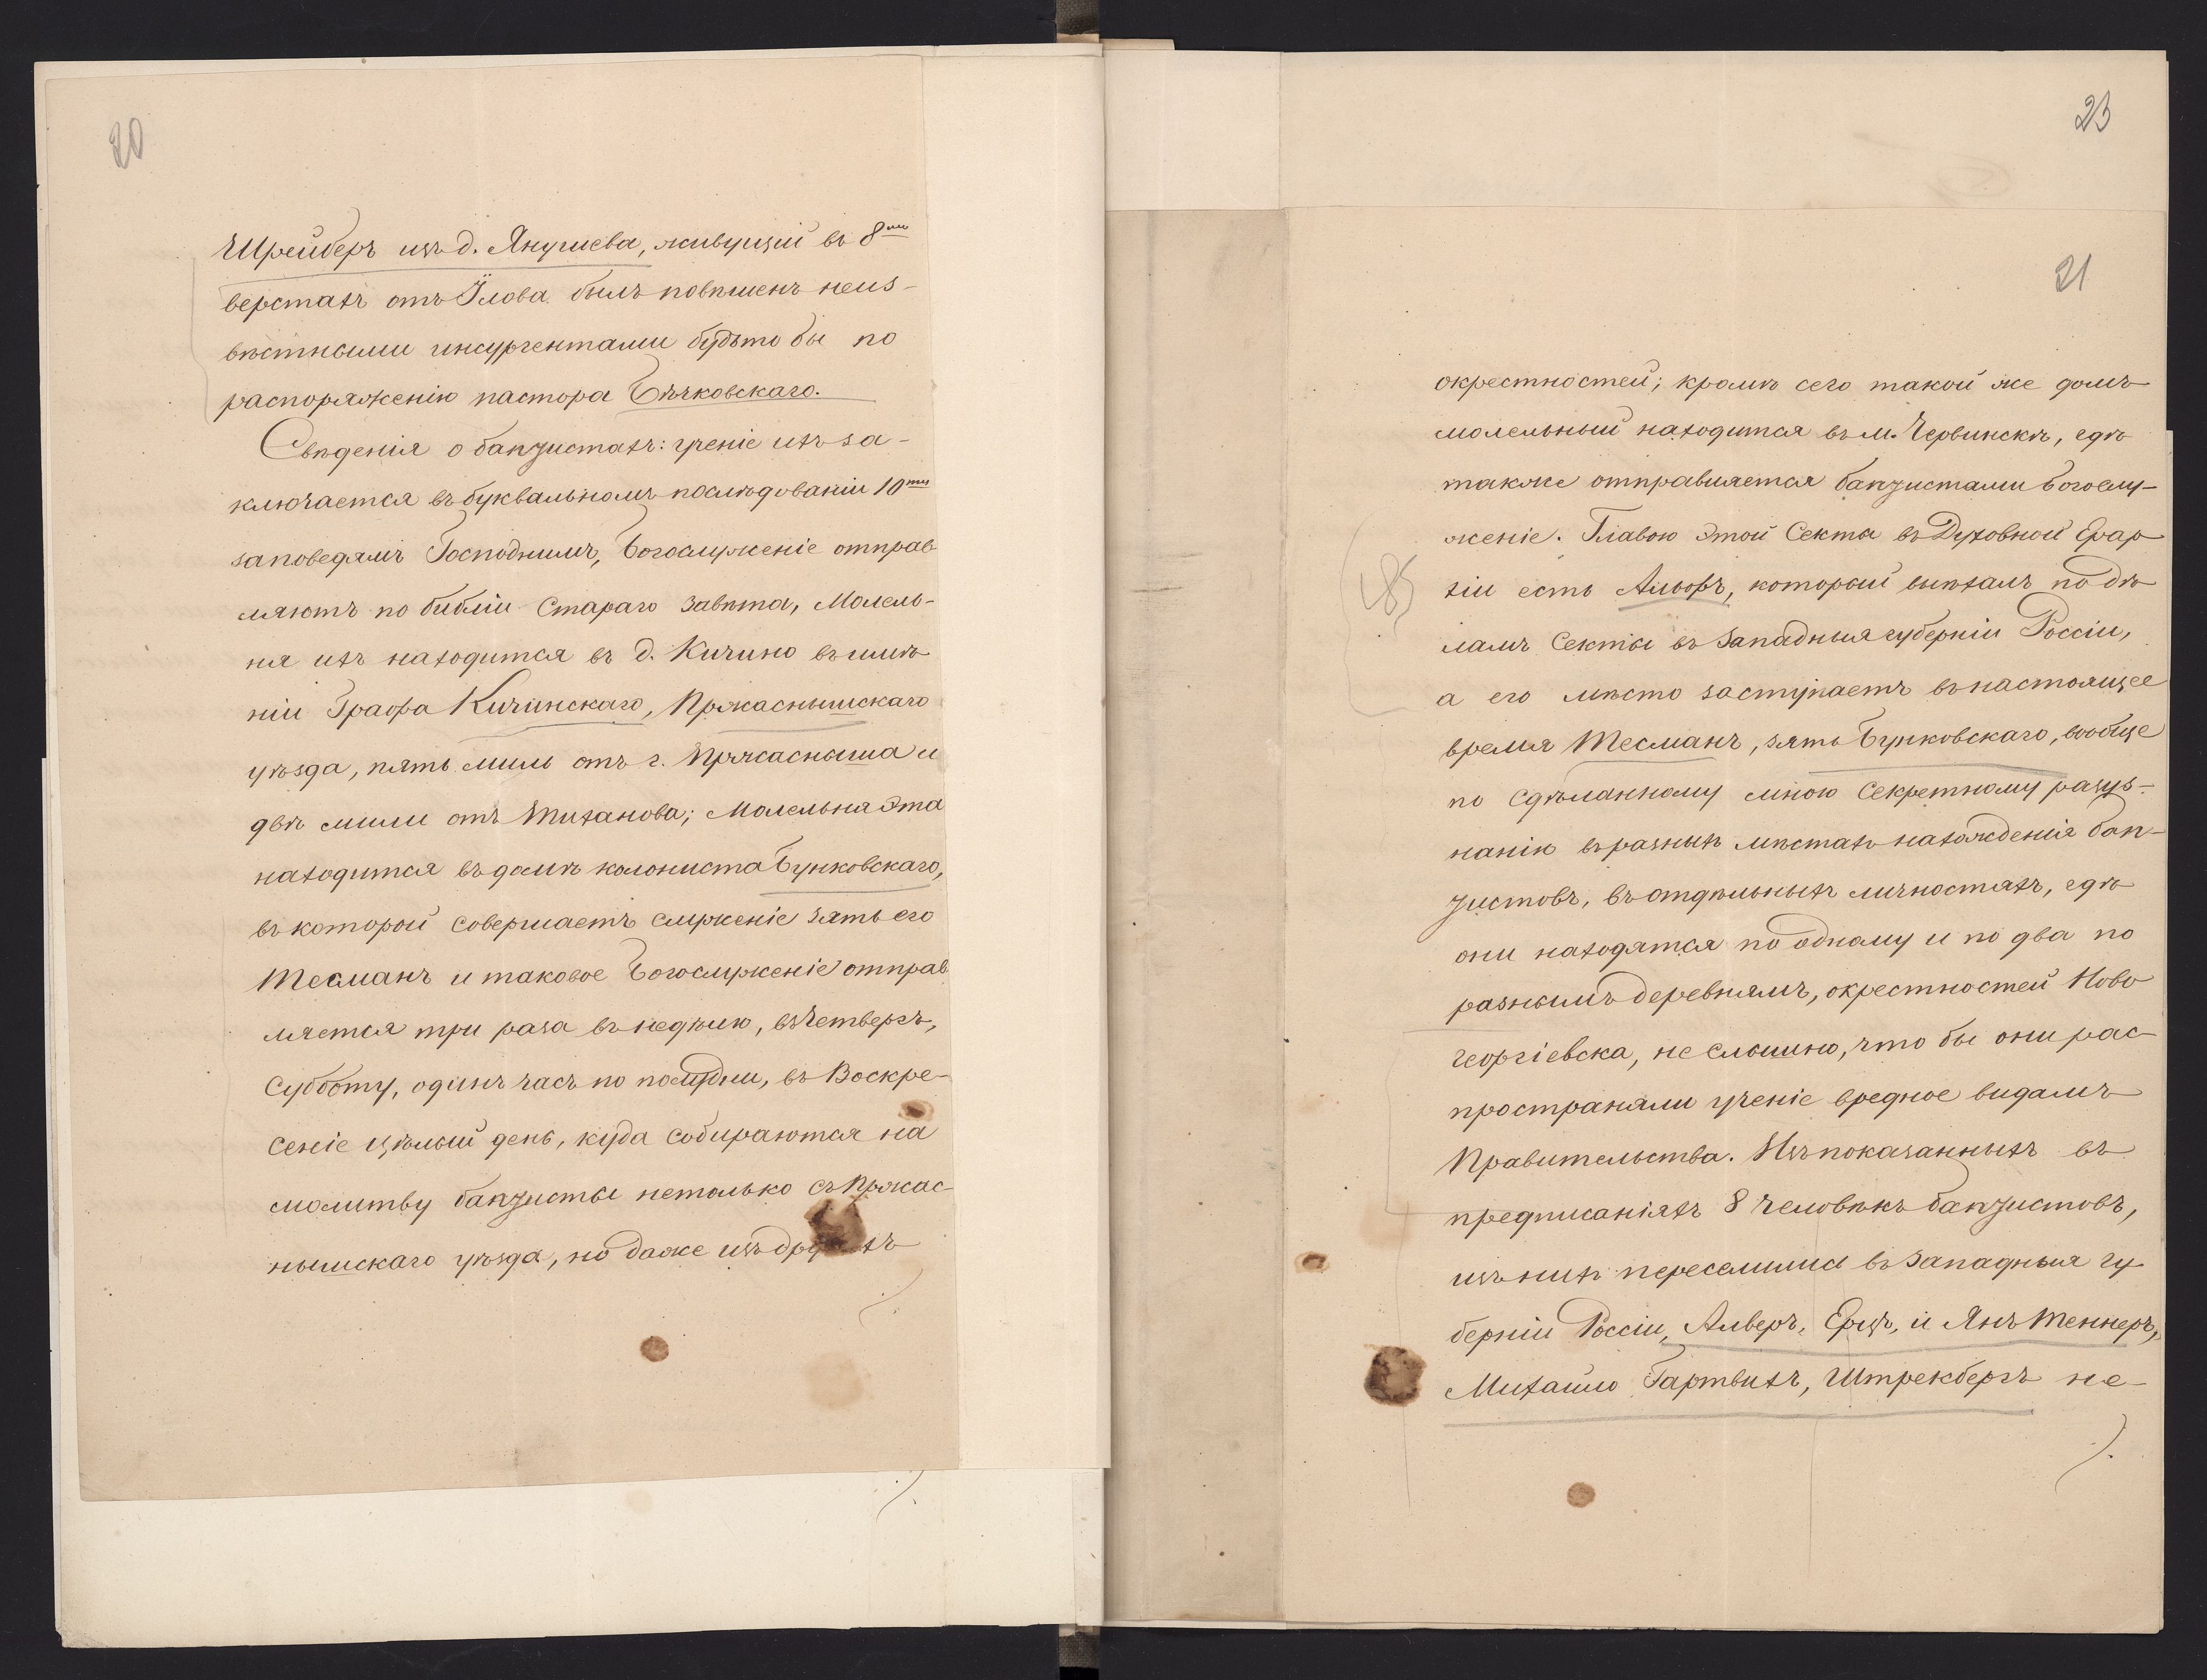 20
Шрейберъ изъ д. Янушева, живущій въ 8ми
верстахъ отъ Илова былъ повѣшенъ неиз-
вѣстными инсургентами будьто бы по
распоряженію пастора Бѣчковскаго.
Свѣденія о баптистахъ: ученіе ихъ за-
ключается въ буквальномъ послѣдованіи 10ти
заповедямъ Господнимъ, Богослуженіе отправ-
ляютъ по библіи Стараго Завѣта, Молель-
ня ихъ находится въ д. Кичино въ имѣ-
ніи Графа Кичинскаго, Пржаснышскаго
уѣзда, пять миль отъ г. Пржасныша и
двѣ мили отъ Тиханова; Молельня эта
находится въ домѣ колониста Бунковскаго,
въ которой совершаетъ служеніе зять его
Тесманъ и таковое Богослуженіе отправ
ляется три раза въ недѣлю, въ Четвергъ,
Субботу, одинъ часъ по полудни, въ Воскре-
сеніе цѣлый день, куда собираются на
молитву баптисты нетолько съ Пржас-
нышскаго уѣзда, но даже изъ другихъ
23
21
окрестностей; кромѣ сего такой же домъ
молельный находится въ м. Червинскѣ, гдѣ
также отправляется баптистами Богослу-
женіе. Главою этой Секты въ Духовной Ерар
хіи есть Альфъ, который выѣхалъ по дѣ
ламъ Секты въ Западныя губерніи Россіи,
а его мѣсто заступаетъ въ настоящее
время Тесманъ, зять Бунковскаго, вообще
по сдѣланному мною Секретному разуз-
нанію въ разныхъ мѣстахъ нахожденія бап-
тистовъ, въ отдѣльныхъ личностяхъ, гдѣ
они находятся по одному и по два по
разнымъ деревнямъ, окрестностей Ново
георгіевска, не слышно, что бы они рас
пространяли ученіе вредное видамъ
Правительства. Изъ показанныхъ въ
предписаніяхъ 8 человѣкъ баптистовъ,
изъ нихъ переселились въ Западныя гу
берніи Россіи, Алверъ, Ерцъ, и Янъ Теннеръ,
Михайло Гартвихъ, Штрекбергъ не-